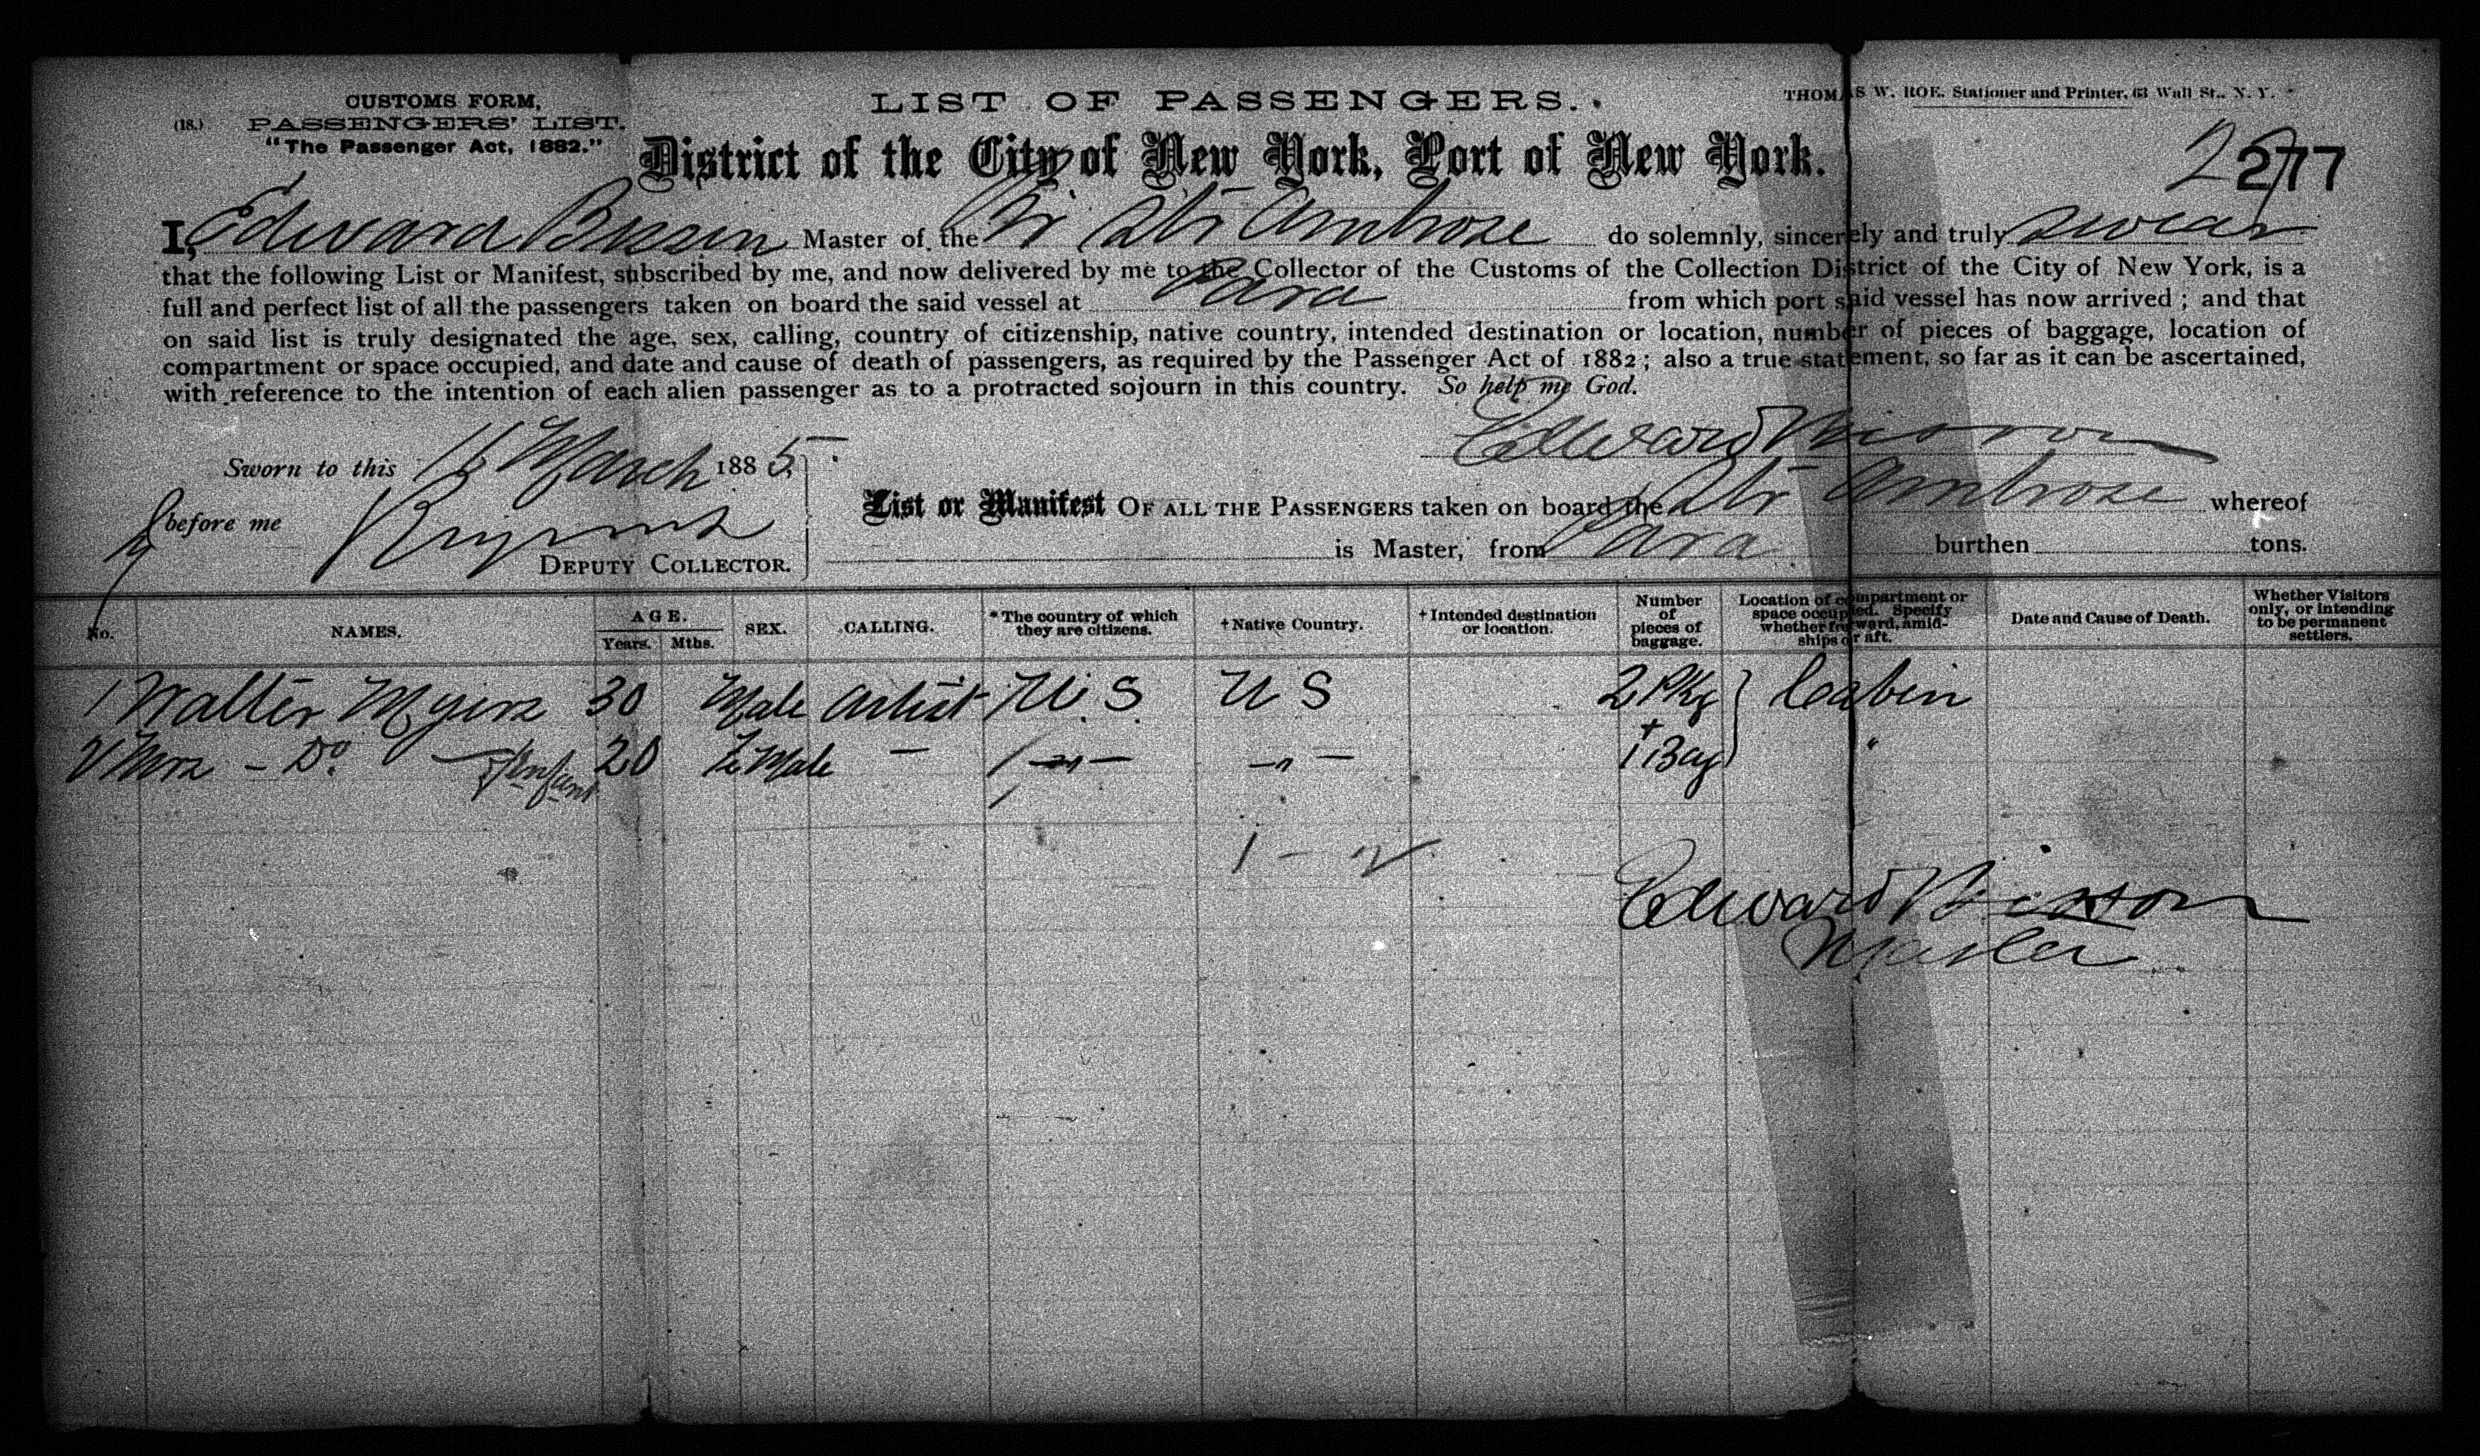 CUSTOMS FORM,
(18.) PASSENGERS' LIST.
"The Passenger Act, 1882."
LIST OF PASSENGERS.
THOMAS W. ROE. Stationer and Printer, 63 Wall St., N. Y.
District of the City of New York, Port of New York.
277
I, Edward Bisson Master of the Br Str Ambrose do solemnly, sincerely and truly swear
that the following List or Manifest, subscribed by me, and now delivered by me to the Collector of the Customs of the Collection District of the City of New York, is a
full and perfect list of all the passengers taken on board the said vessel at Para from which port said vessel has now arrived; and that
on said list is truly designated the age, sex, calling, country of citizenship, native country, intended destination or location, number of pieces of baggage, location of
compartment or space occupied, and date and cause of death of passengers, as required by the Passenger Act of 1882; also a true statement, so far as it can be ascertained,
with reference to the intention of each alien passenger as to a protracted sojourn in this country. So help me God.
Edward Bisson
Sworn to this 16 March 1885.
before me
DEPUTY COLLECTOR.
List or Manifest OF ALL THE PASSENGERS taken on board the Str Ambrose whereof
is Master, from Para burthen tons.
No. NAMES. AGE. Years. Mths. SEX. CALLING. *The country of which they are citizens. †Native Country. †Intended destination or location. Number of pieces of baggage. Location of compartment or space occupied. Specify whether forward, amidships or aft. Date and Cause of Death. Whether Visitors only, or intending to be permanent settlers.
1 Walter Myers 30 Male Artist U.S. U S 2 Pkg Cabin
2 Mrs - Do. - & Infant 20 Fe Male — — " — — " — + 1 Bag "
1 -
Edward Bisson
Master